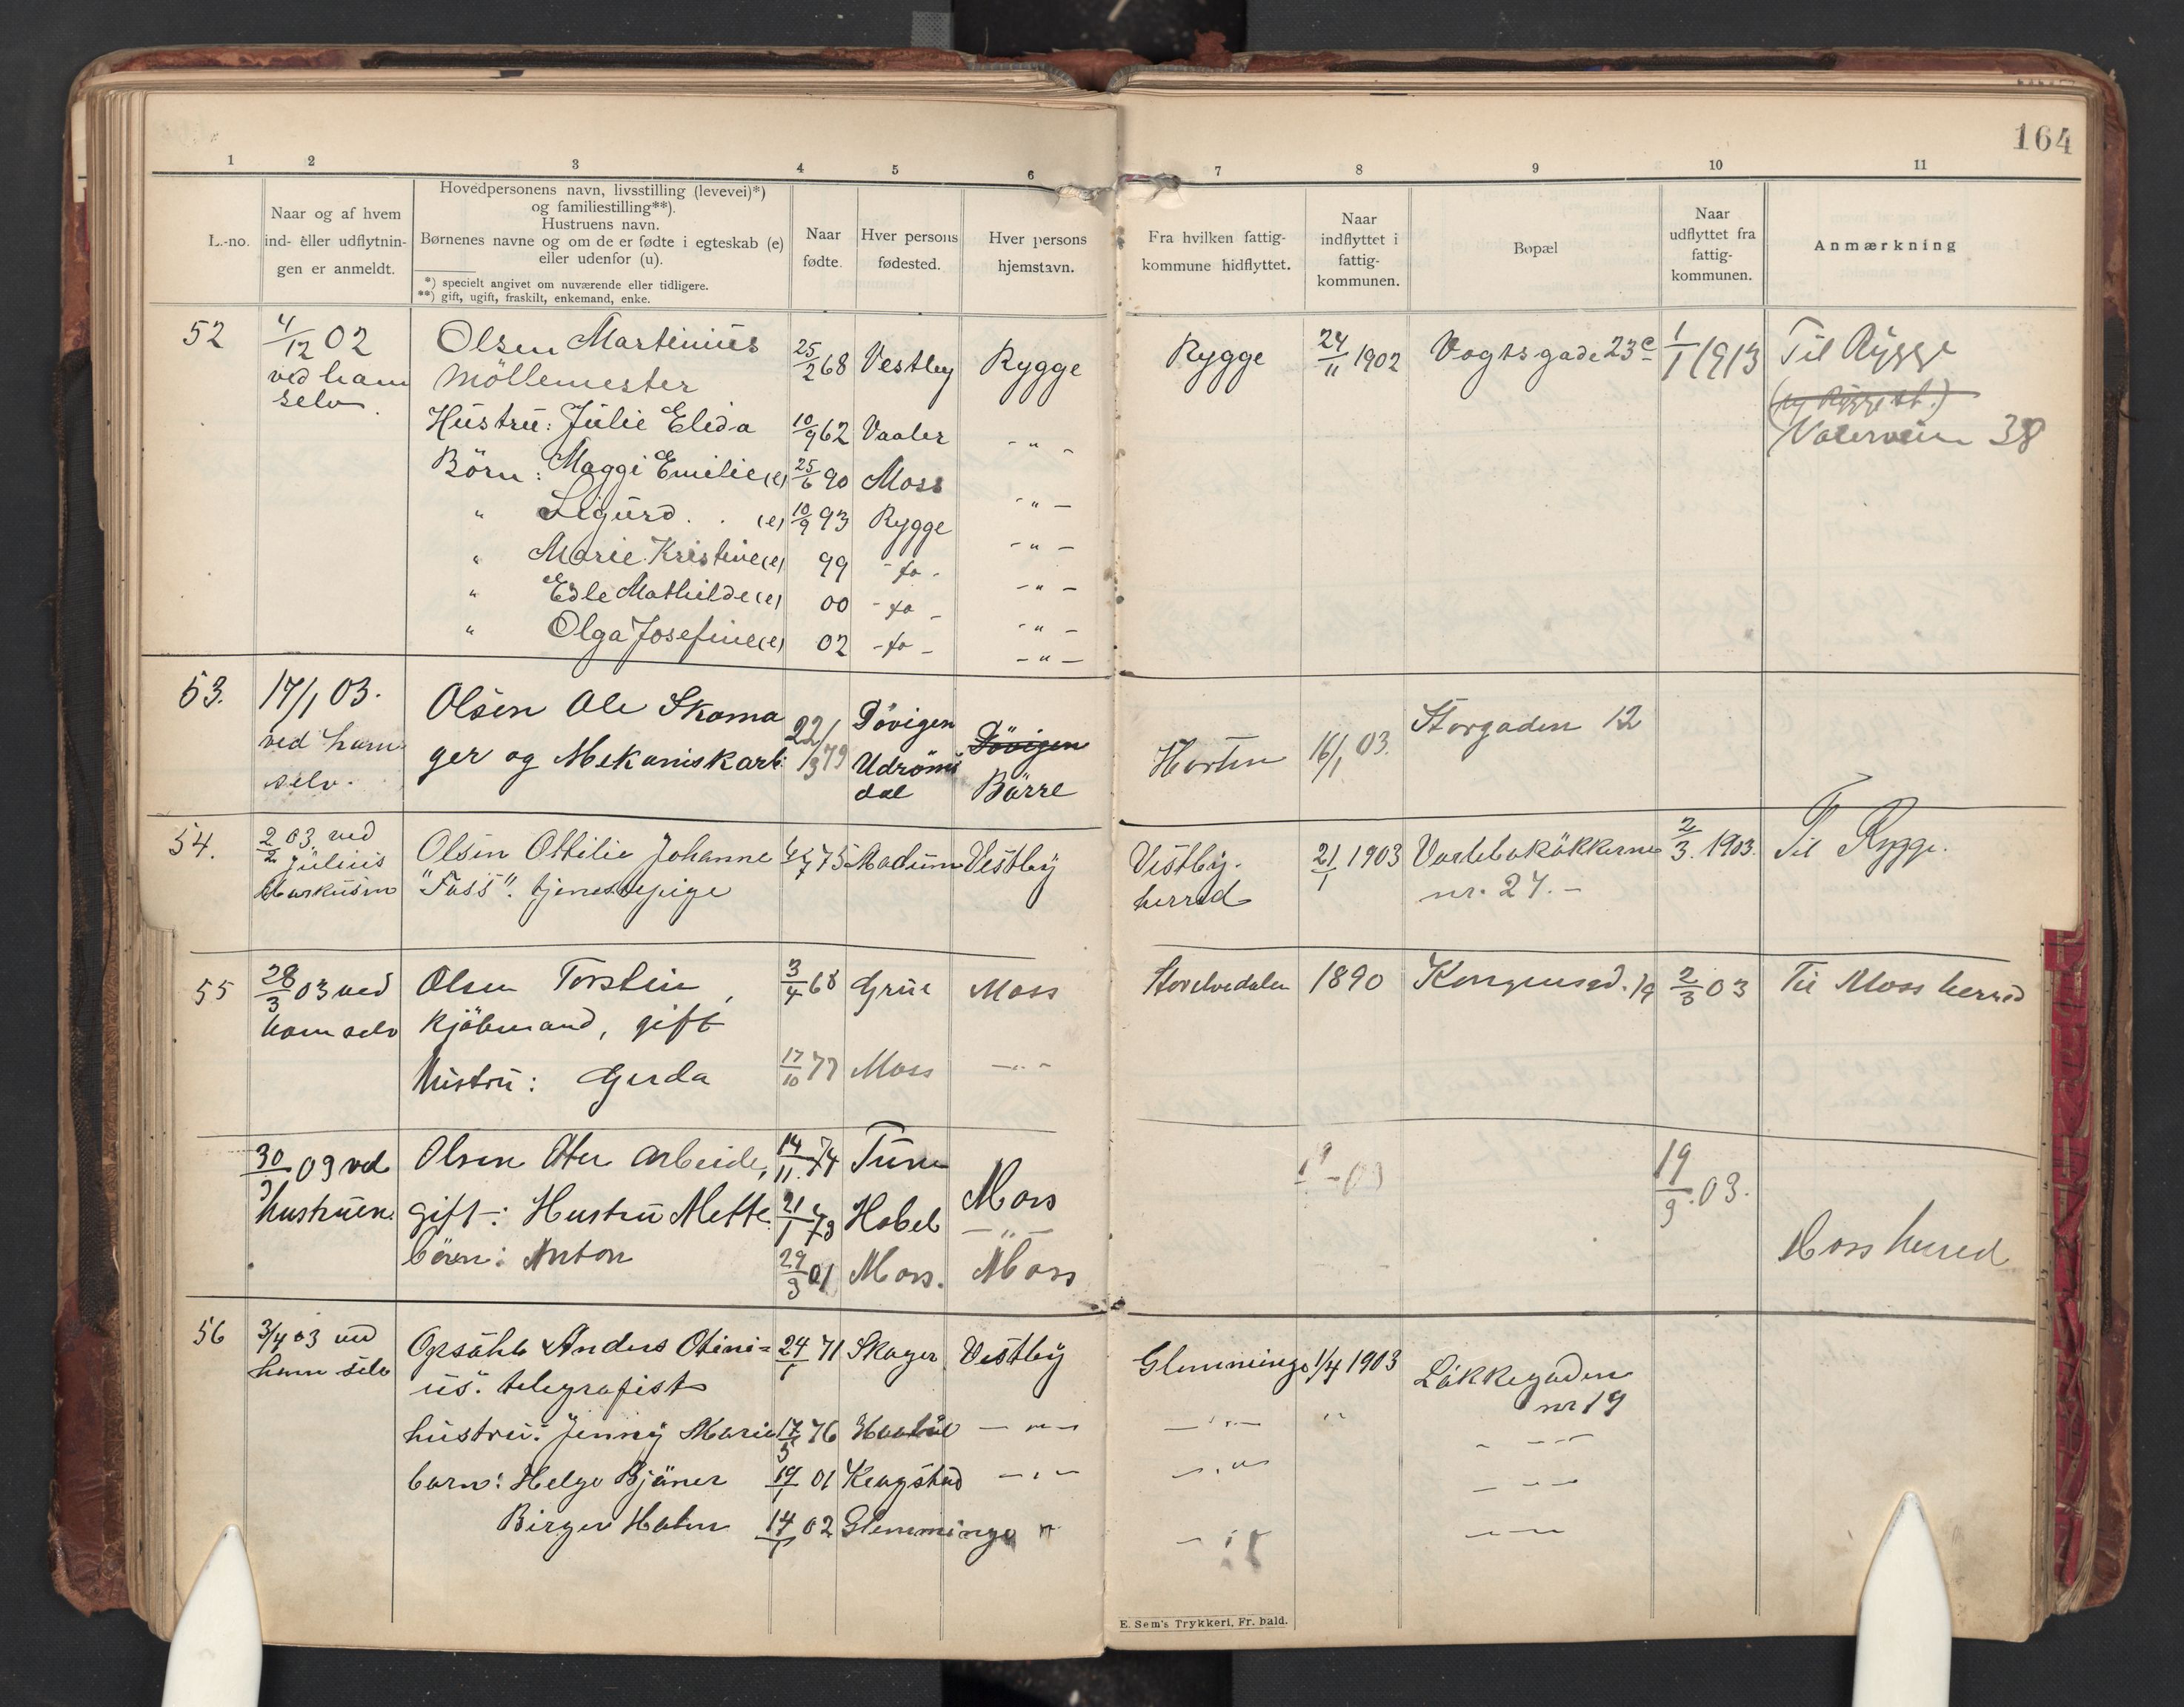 164
1 2 3 4 5 6 7 8 9 10 11
L.-no.
Naar og af hvem
ind- eller udflytnin-
gen er anmeldt.
Hovedpersonens navn, livsstilling (levevei)*)
og familiestilling**).
Hustruens navn.
Børnenes navne og om de er fødte i egteskab (e)
eller udenfor (u).
*) specielt angivet om nuværende eller tidligere.
**) gift, ugift, fraskilt, enkemand, enke.
Naar
fødte.
Hver persons
fødested.
Hver persons
hjemstavn.
Fra hvilken fattig-
kommune hidflyttet.
Naar
indflyttet i
fattig-
kommunen.
Bopæl
Naar
udflyttet fra
fattig-
kommunen.
Anmærkning
52 4/12 02 Olsen Martinius 25/2 68 Vestby Rygge Rygge 24/11 1902 Vogtsgade 23c 1/1 1913 Til Rygge
ved ham Möllemester
selv.
Hustru: Julie Elida 10/9 62 Vaaler - " - 38
Börn: Maggi Emilie (e) 25/6 90 Moss - " -
" Sigurd . . (e) 10/9 93 Rygge - " -
" Marie Kristine (e) 99 - do - - " -
" Edle Mathilde (e) 00 - do - - " -
" Olga Josefine (e) 02 - do - - " -
53. 17/1 03. Olsen Ole Skoma 22/3 79 Dövigen Dövigen Horten 16/1 03. Storgaden 12
ved ham ger og Mekanisk arb: Udröms Börre
selv. dal
54. 2/2 03. ved Olsen Ottilie Johanne 75 Vestby Vestby. 21/1 1903 2/3. 1903. Til Rygge.
Julius "Foss". tjenestepige herred nr. 27. -
Markusen
55 28/3 03 ved Olsen Torstein, 3/4 68 Grue Moss 1890 Kongensgd. 19 2/3 03 Til Moss herred
ham selv kjöbmand, gift
hustru: Gerda 17/10 77 Moss - " -
30/3 03 ved Olsen arbeider, 14/11. 74 Tune Moss 19/3. 03.
hustruen. gift: Hustru Mette 21/1 73 Hobel - " - Moss herred
bören: Anton 29/9 01 Moss. Moss
56 3/4 03 ved Opsahl Anders Otini= 24/1 71 Skager Vestby Glemminge 1/4 1903 Lökkegaden
ham selv us. telegrafist nr 19
hustru: Jenny Marie 17/5 76 - " - - " - " - " -
barn: Helge Bjäner 19/1 01 - " - - " - - " -
Birger Holm 14/1 02 Glemminge " - " - - " -
E. Sem's Trykkeri, Fr. hald.